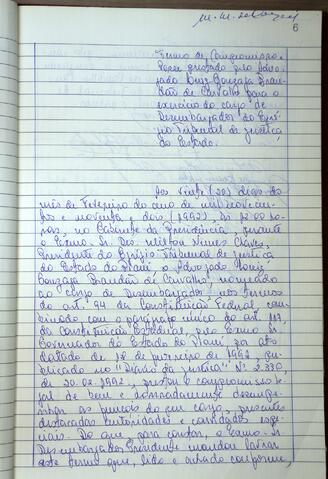 6
Termo de Compromisso
Legal prestado pelo Advo-
gado Luiz Gonzaga Bran-
dão de Carvalho para o
exercício do cargo de
Desembargador do Egré-
gio Tribunal de Justiça
do Estado.
Aos vinte (20) dias do
mês de Fevereiro do ano de mil novecen-
tos e noventa e dois (1992), às 12:00 ho-
ras, no Gabinete da Presidência, perante
o Exmo. Sr. Des. Milton Nunes Chaves,
Presidente do Egrégio Tribunal de Justiça
do Estado do Piauí, o Advogado Luiz
Gonzaga Brandão de Carvalho, nomeado
ao cargo de Desembargador, nos termos
do art. 94 da Constituição Federal, com-
binado com o parágrafo único do art.
da Constituição Estadual, pelo Exmo. Sr.
Governador do Estado do Piauí, por ato
datado de 18 de fevereiro de 1992, pu-
blicado no "Diário da Justiça" Nº 2.330,
de 20.02.1992, prestou o compromisso le-
gal de bem e honradamente desempe-
nhar as funções do seu cargo, presentes
destacadas autoridades e convidados espe-
ciais. Do que, para constar, o Exmo. Sr.
Desembargador Presidente mandou lavrar
este termo que, lido e achado conforme,